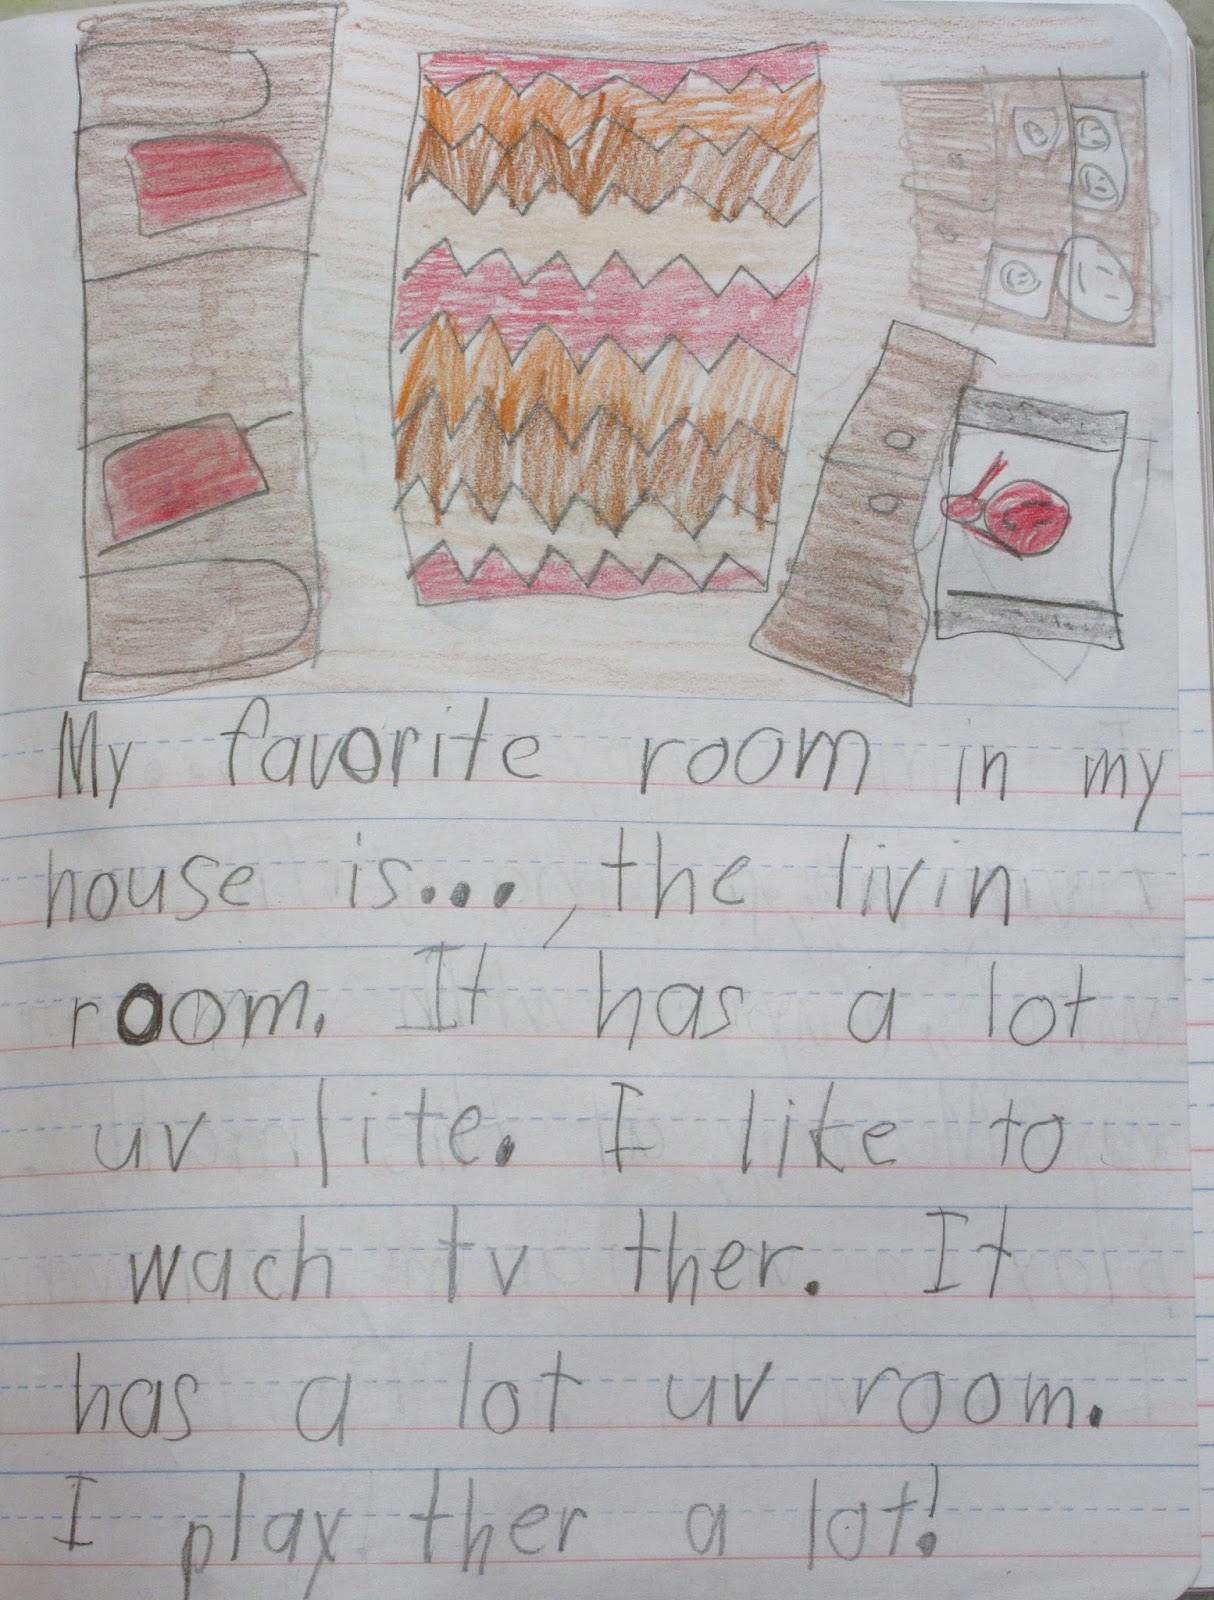 My favorite room in my
house is..., the livin
room. It has a lot
uv lite. I like to
wach tv ther. It
has a lot uv room.
I play ther a lot!